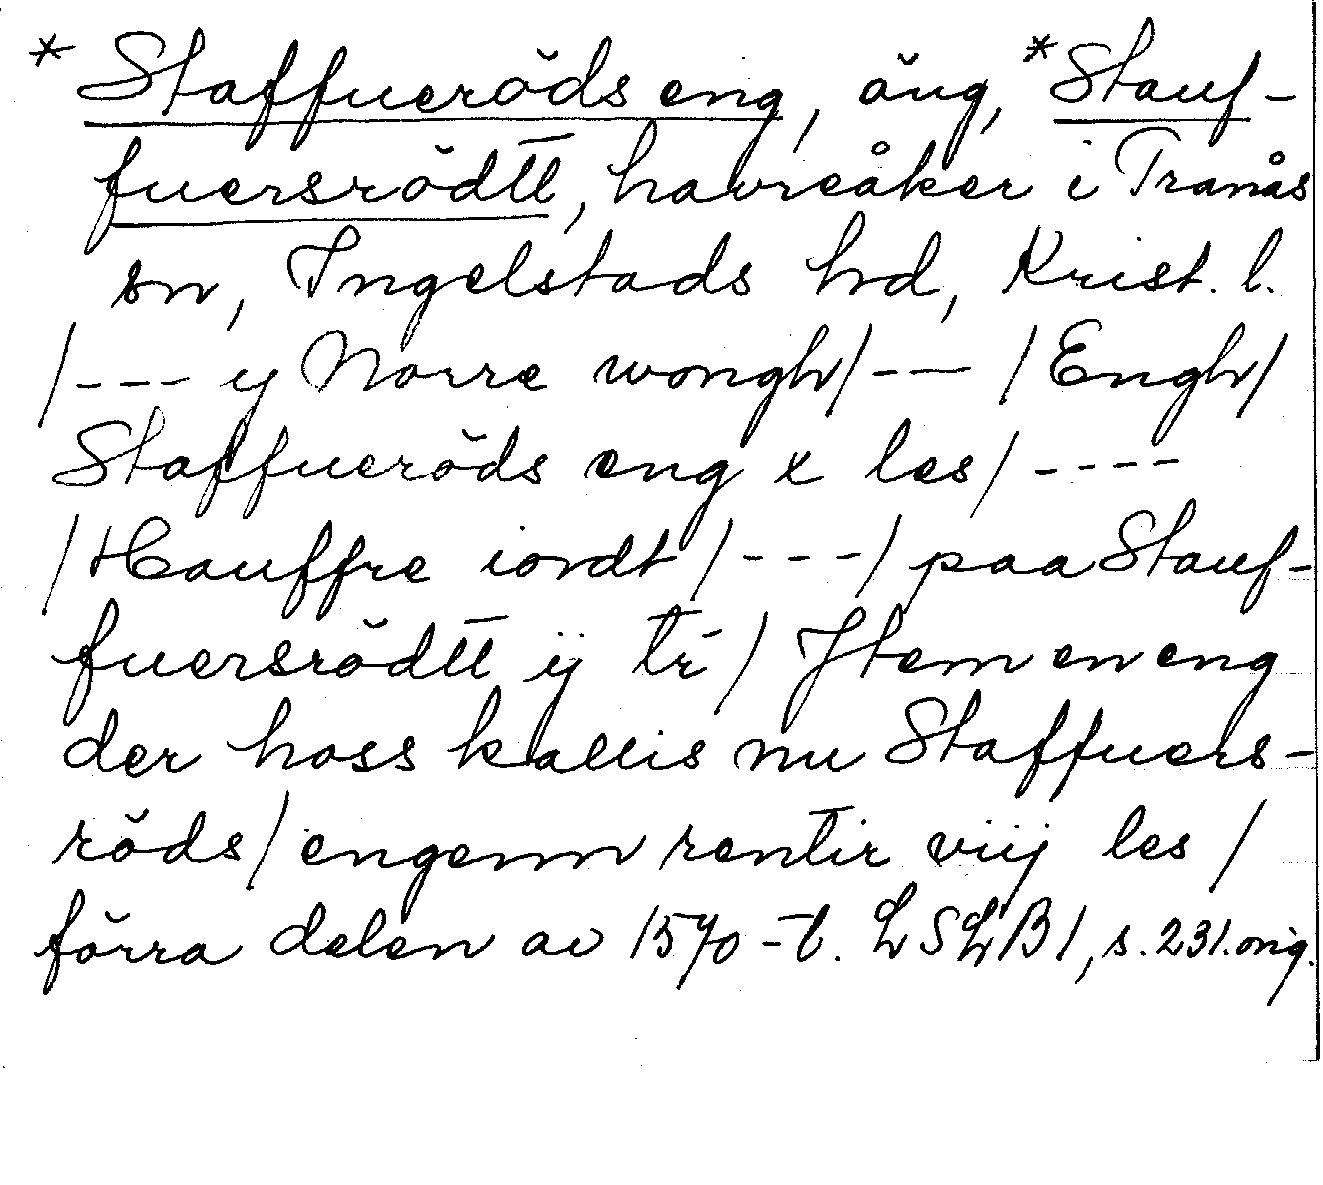 * Staffueröds eng, äng, * Stauf-
fuersrödtt, havreåker i Tranås
sn, Ingelstads hd, Krist. l.
/--- y Norre wongh/--- /Engh/
Staffueröds eng x les/----
/Hauffre iordt/---/ paa Stauf-
fuersrödtt ij tr̄/ Jtem en eng
der hoss kallis nu Staffuers-
röds/engenn rentir viij les /
förra delen av 1570-t. LSLB1, s. 231.orig.